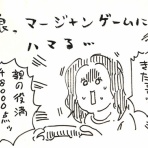 娘、マージャンゲームに
ハマる…
きた
親の役満
48000点ッ